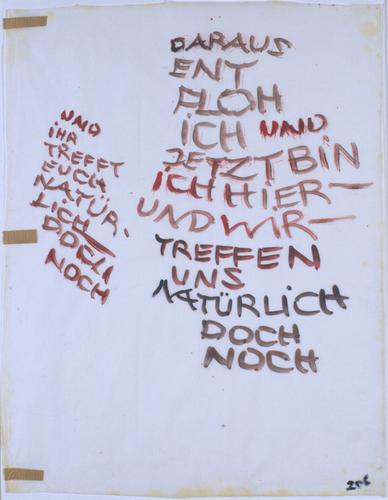 DARAUS
ENT
FLOH
ICH UND
JETZT BIN
ICH HIER—
UND WIR—
TREFFEN
UNS
NATÜRLICH
DOCH
NOCH
UND
IHR
TREFFT
EUCH
NATÜR-
LICH
DOCH
NOCH